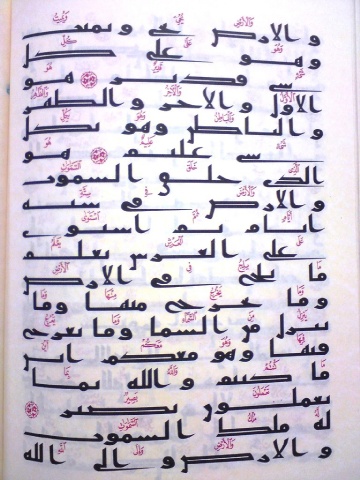 والارض يحي ويميت
وهو على كل
شي قدير هو
الاول والاخر والظهر
والباطن وهو بكل
شي عليم هو
الذي خلق السموت
والارض في ستة
ايام ثم استوى
على العرش يعلم
ما يلج في الارض
وما يخرج منها وما
ينزل من السما وما يعرج
فيها وهو معكم اين
ما كنتم والله بما
تعملون بصير
له ملك السموت
والارض والى الله